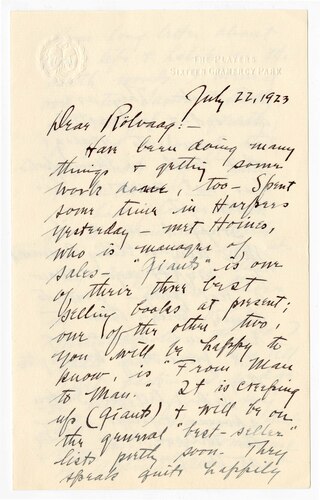 THE PLAYERS
SIXTEEN GRAMERCY PARK
July 22, 1923
Dear Rolvaag:-
Have been doing many
things & getting some
work done, too - Spent
some time in Harpers
yesterday - met Hoines,
who is manager of
sales - "Giants" is one
of their three best
selling books at present;
one of the other two,
you will be happy to
know, is "From Man
to Man." It is creeping
up (Giants) & will be on
the general "best-seller"
lists pretty soon. They
speak quite happily